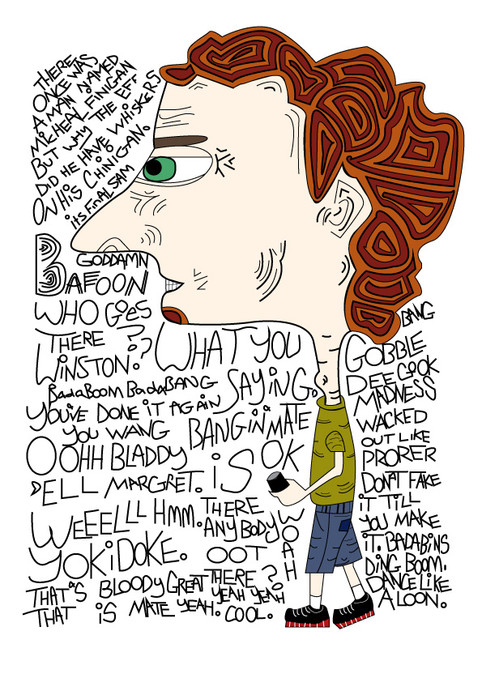 THERE
ONCE WAS
A MAN NAMED
MICHEAL FINIGAN
BUT WHY THE EFF
DID HE HAVE WHISKERS
ON HIS CHINIGAN.
itS FINAL SAM
GODDAMN
BAFOON
WHO GOES
THERE ??
WINSTON.
BadaBOOM BadaBANG
YOU'VE DONE IT AGAIN
YOU WANG
OOHH BLADDY
DELL MARGRET.
WEEELLL HMM.
YOKiDOKE.
THAT'S BLOODY GREAT
THAT iS MATE YEAH.
WHAT YOU
SAYING.
BANGiN MATE
iS OK
THERE
ANYBODY
OOT
THERE?
YEAH YEAH
COOL.
WOAH
BANG
GOBBLE
DEE GOOK
MADNESS
WACKED
OUT LIKE
PRORER
DON'T FAKE
iT TiLL
YOU MAKE
iT. BADABiNS
DiNG BOOM.
DANCE LIKE
A LOON.